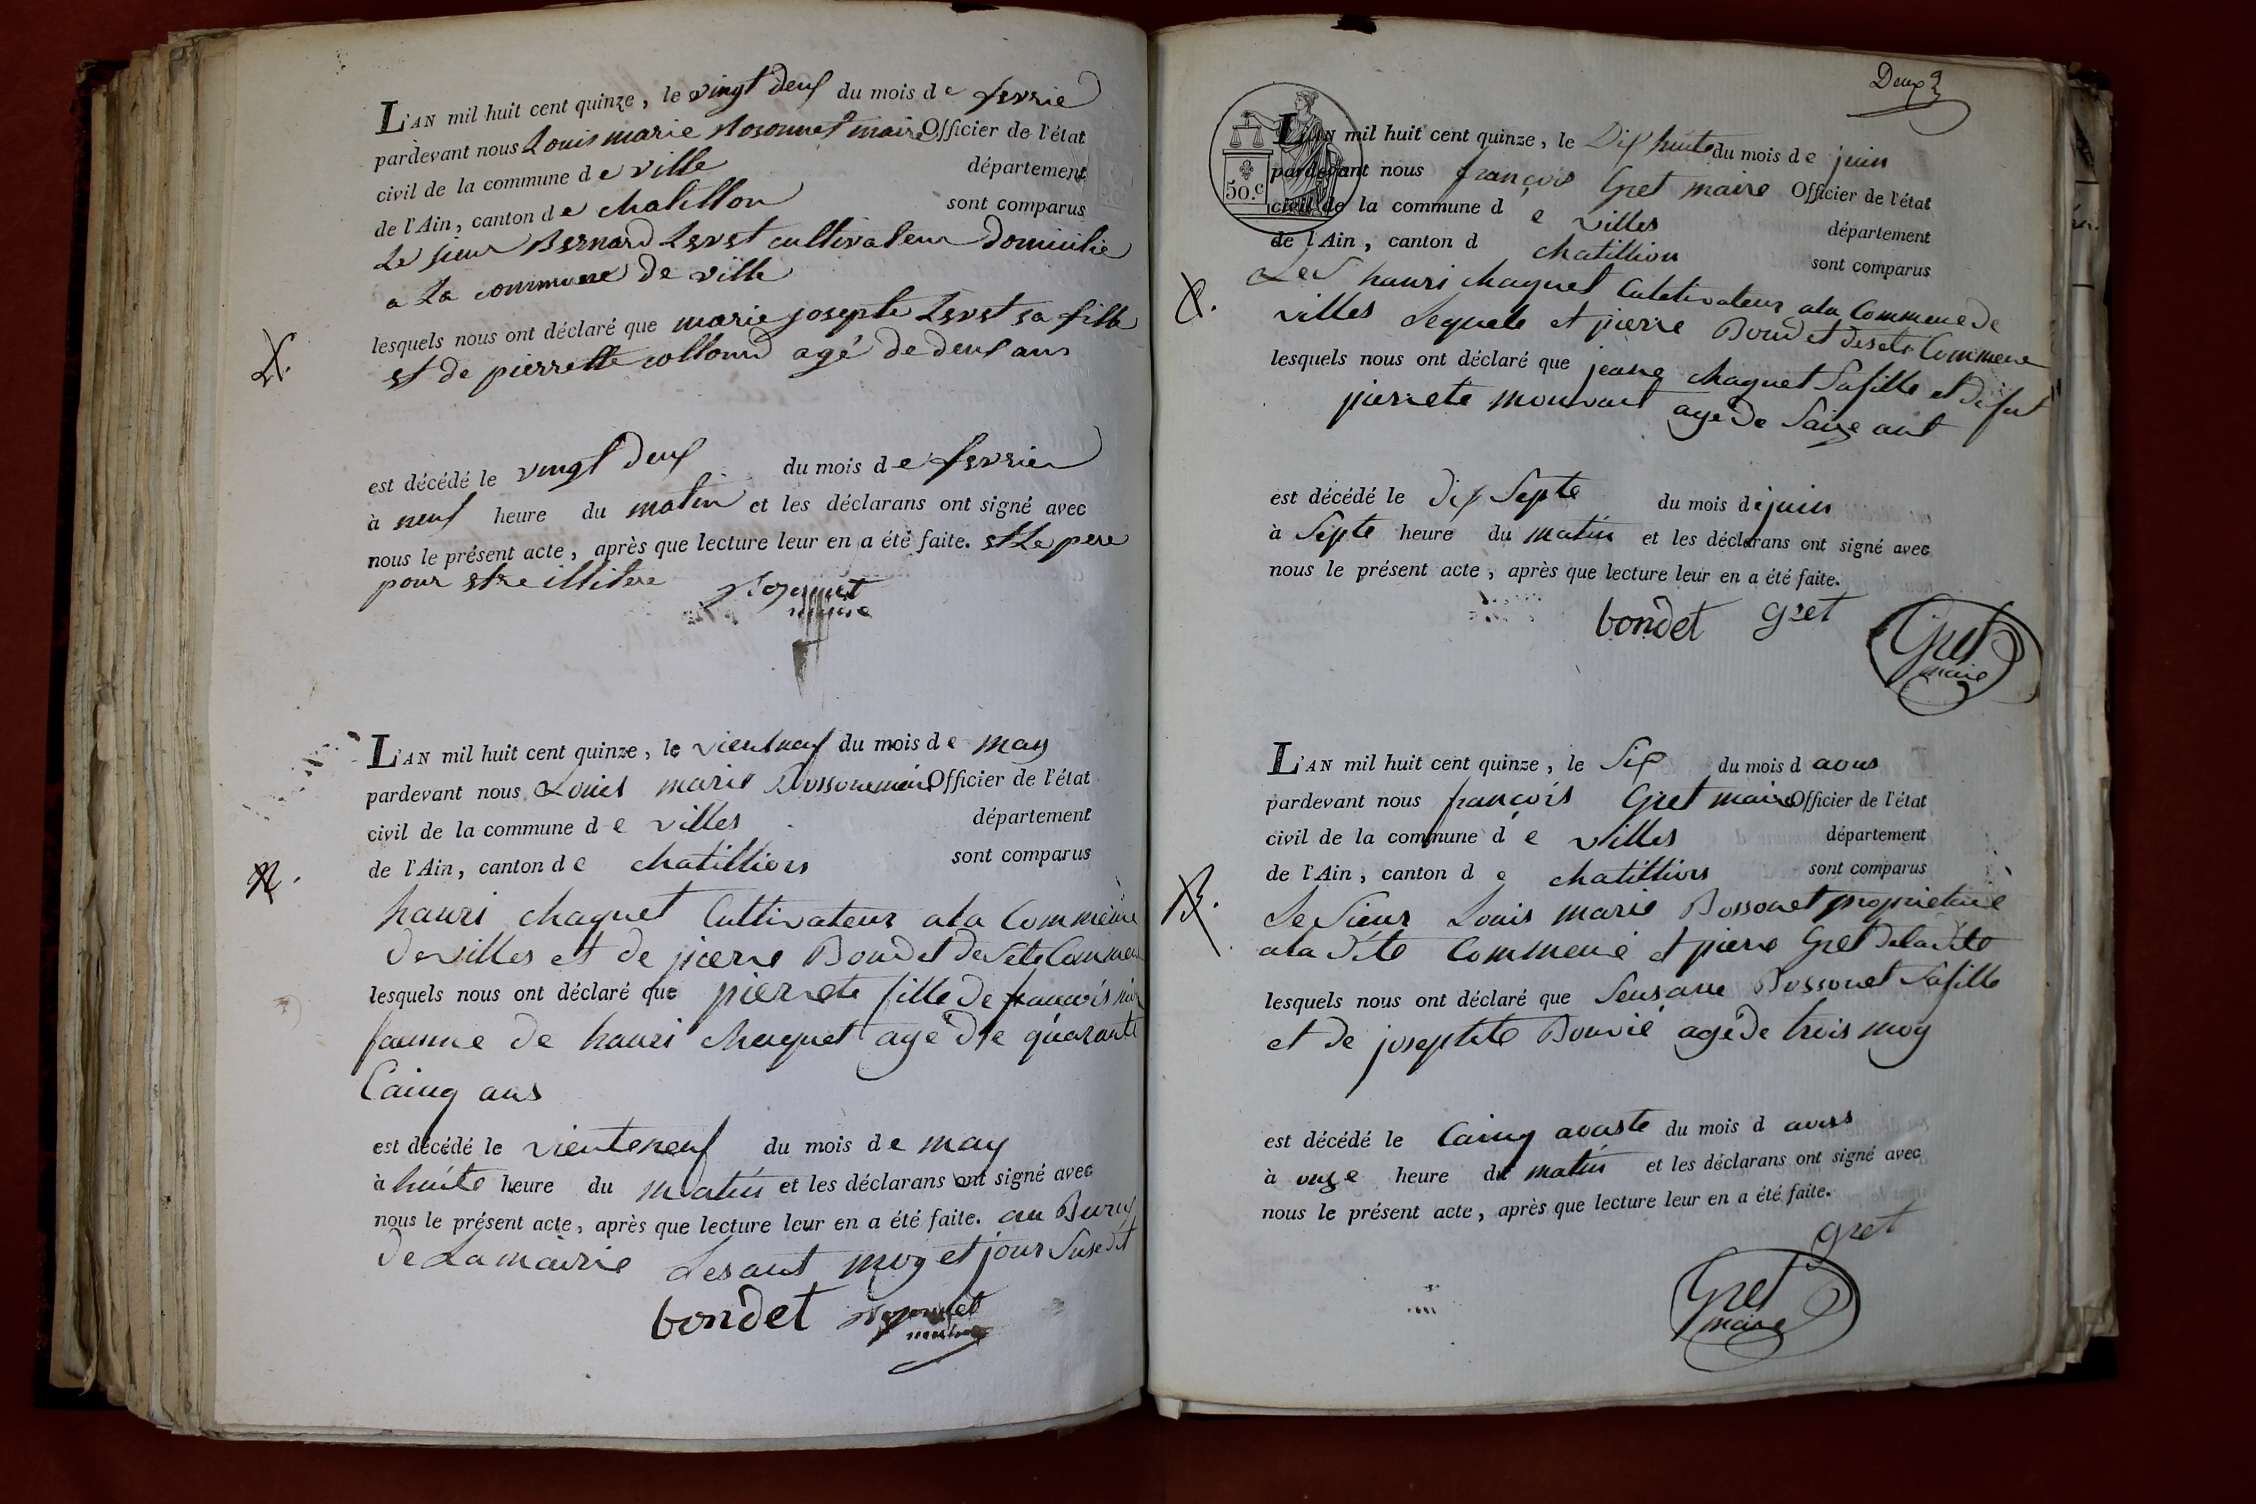 L'AN mil huit cent quinze, le vingt deux du mois de fevrie
pardevant nous Louis marie Rosonnet maire Officier de l'état
civil de la commune de ville département
de l'Ain, canton de chatillon sont comparus
Le sieur Bernard Levet cultivateur domicilie
a La commune de ville
lesquels nous ont déclaré que marie josepte Levet sa fille
et de pierrette collomd agé de deux ans
est décédé le vingt deux du mois de fevrier
à neuf heure du matin et les déclarans ont signé avec
nous le présent acte, après que lecture leur en a été faite. et Le pere
pour etre illitere
maire
L'AN mil huit cent quinze, le vientneuf du mois de may
pardevant nous Louis marie maire Officier de l'état
civil de la commune de villes département
de l'Ain, canton de chatillions sont comparus
hanri chaquet Cultivateur ala Commeme
de villes et de pierre Boudet de Sete Commen
lesquels nous ont déclaré que pierrete fille de francois
famme de hanri chaquet agé de quarante
Cainq ans
est décédé le vienteneuf du mois de may
à huite heure du matin et les déclarans ont signé avec
nous le présent acte, après que lecture leur en a été faite. au Bureux
de La mairie Lesant moy et jour Susedit
bondet
Deux
50.c
L'AN mil huit cent quinze, le Dix huite du mois de juin
pardevant nous françois Gret maire Officier de l'état
civil de la commune de villes département
de l'Ain, canton d chatillion sont comparus
Le S hanri chaquet Cultivateur ala Commene de
villes Lequele et pierre Boudet desete Commene
lesquels nous ont déclaré que jeane chaquet Safille et difut
pierrete agé de Saize ant
est décédé le dix Septe du mois de juin
à Septe heure du matin et les déclarans ont signé avec
nous le présent acte, après que lecture leur en a été faite.
bondet gret Gret
maire
L'AN mil huit cent quinze, le Six du mois d aous
pardevant nous françois Gret maire Officier de l'état
civil de la commune de villes département
de l'Ain, canton de chatillions sont comparus
Le Sieur Louis marie Bossonet propriétaire
ala dite Commene et pierre Gret deladite
lesquels nous ont déclaré que Seusane Bossonet Safille
et de josephte Bouvié agé de trois moy
est décédé le Cainq avaste du mois d avers
à onze heure du matin et les déclarans ont signé avec
nous le présent acte, après que lecture leur en a été faite.
gret
Gret
maire